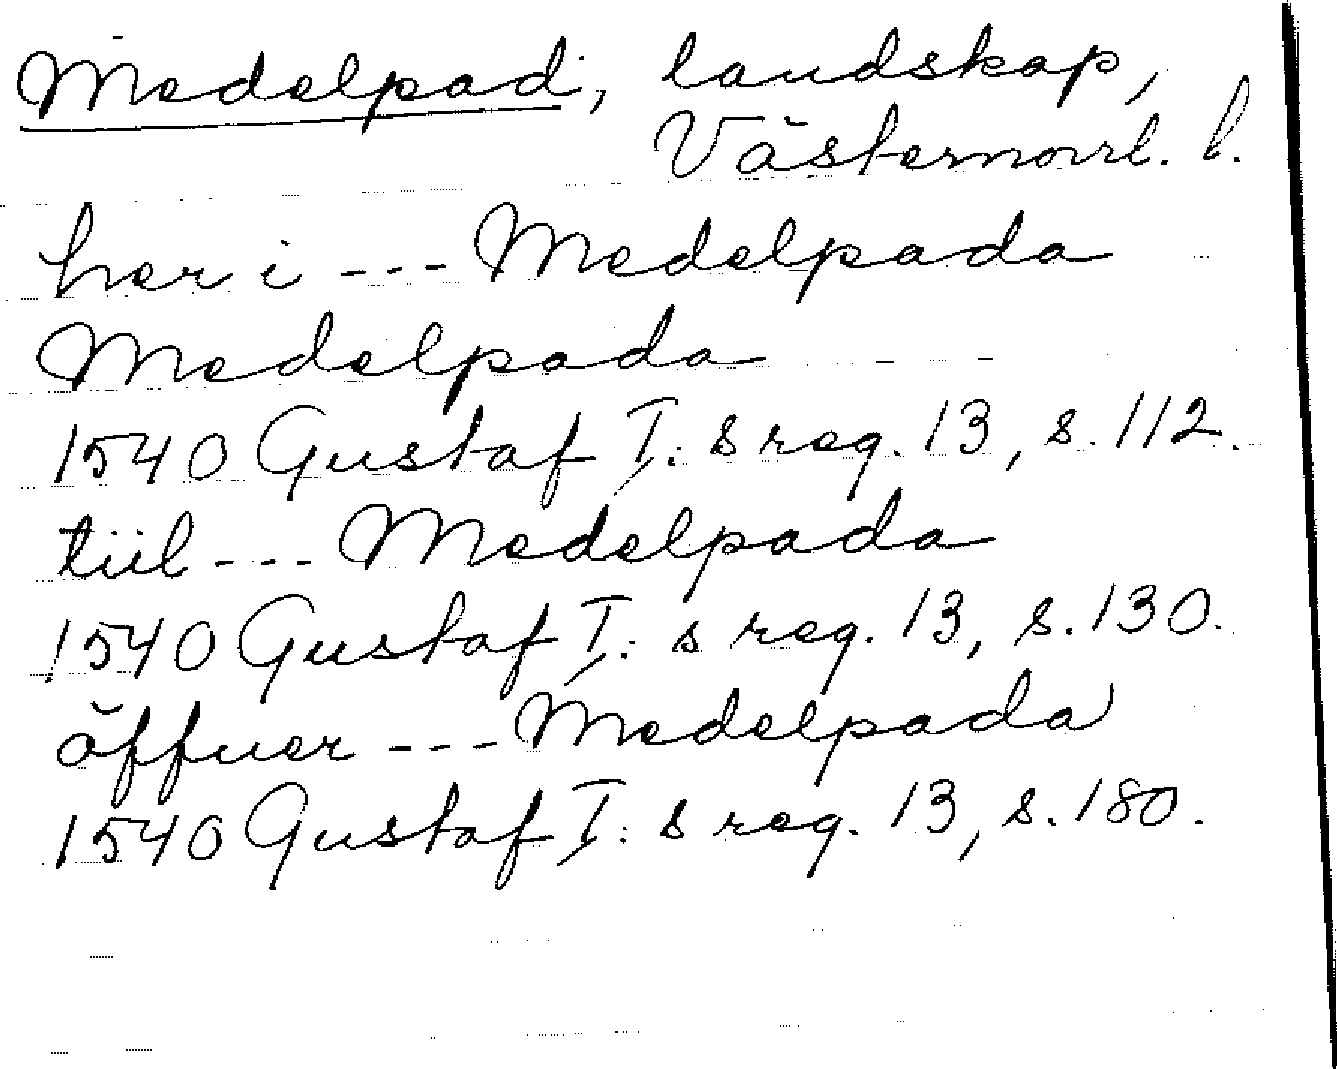 Medelpad, landskap,
Västernorrl. l.
her i --- Medelpada
Medelpada
1540 Gustaf I: s reg. 13, s. 112.
tiil --- Medelpada
1540 Gustaf I: s reg. 13, s. 130.
öffuer --- Medelpada
1540 Gustaf I: s reg. 13, s. 180.